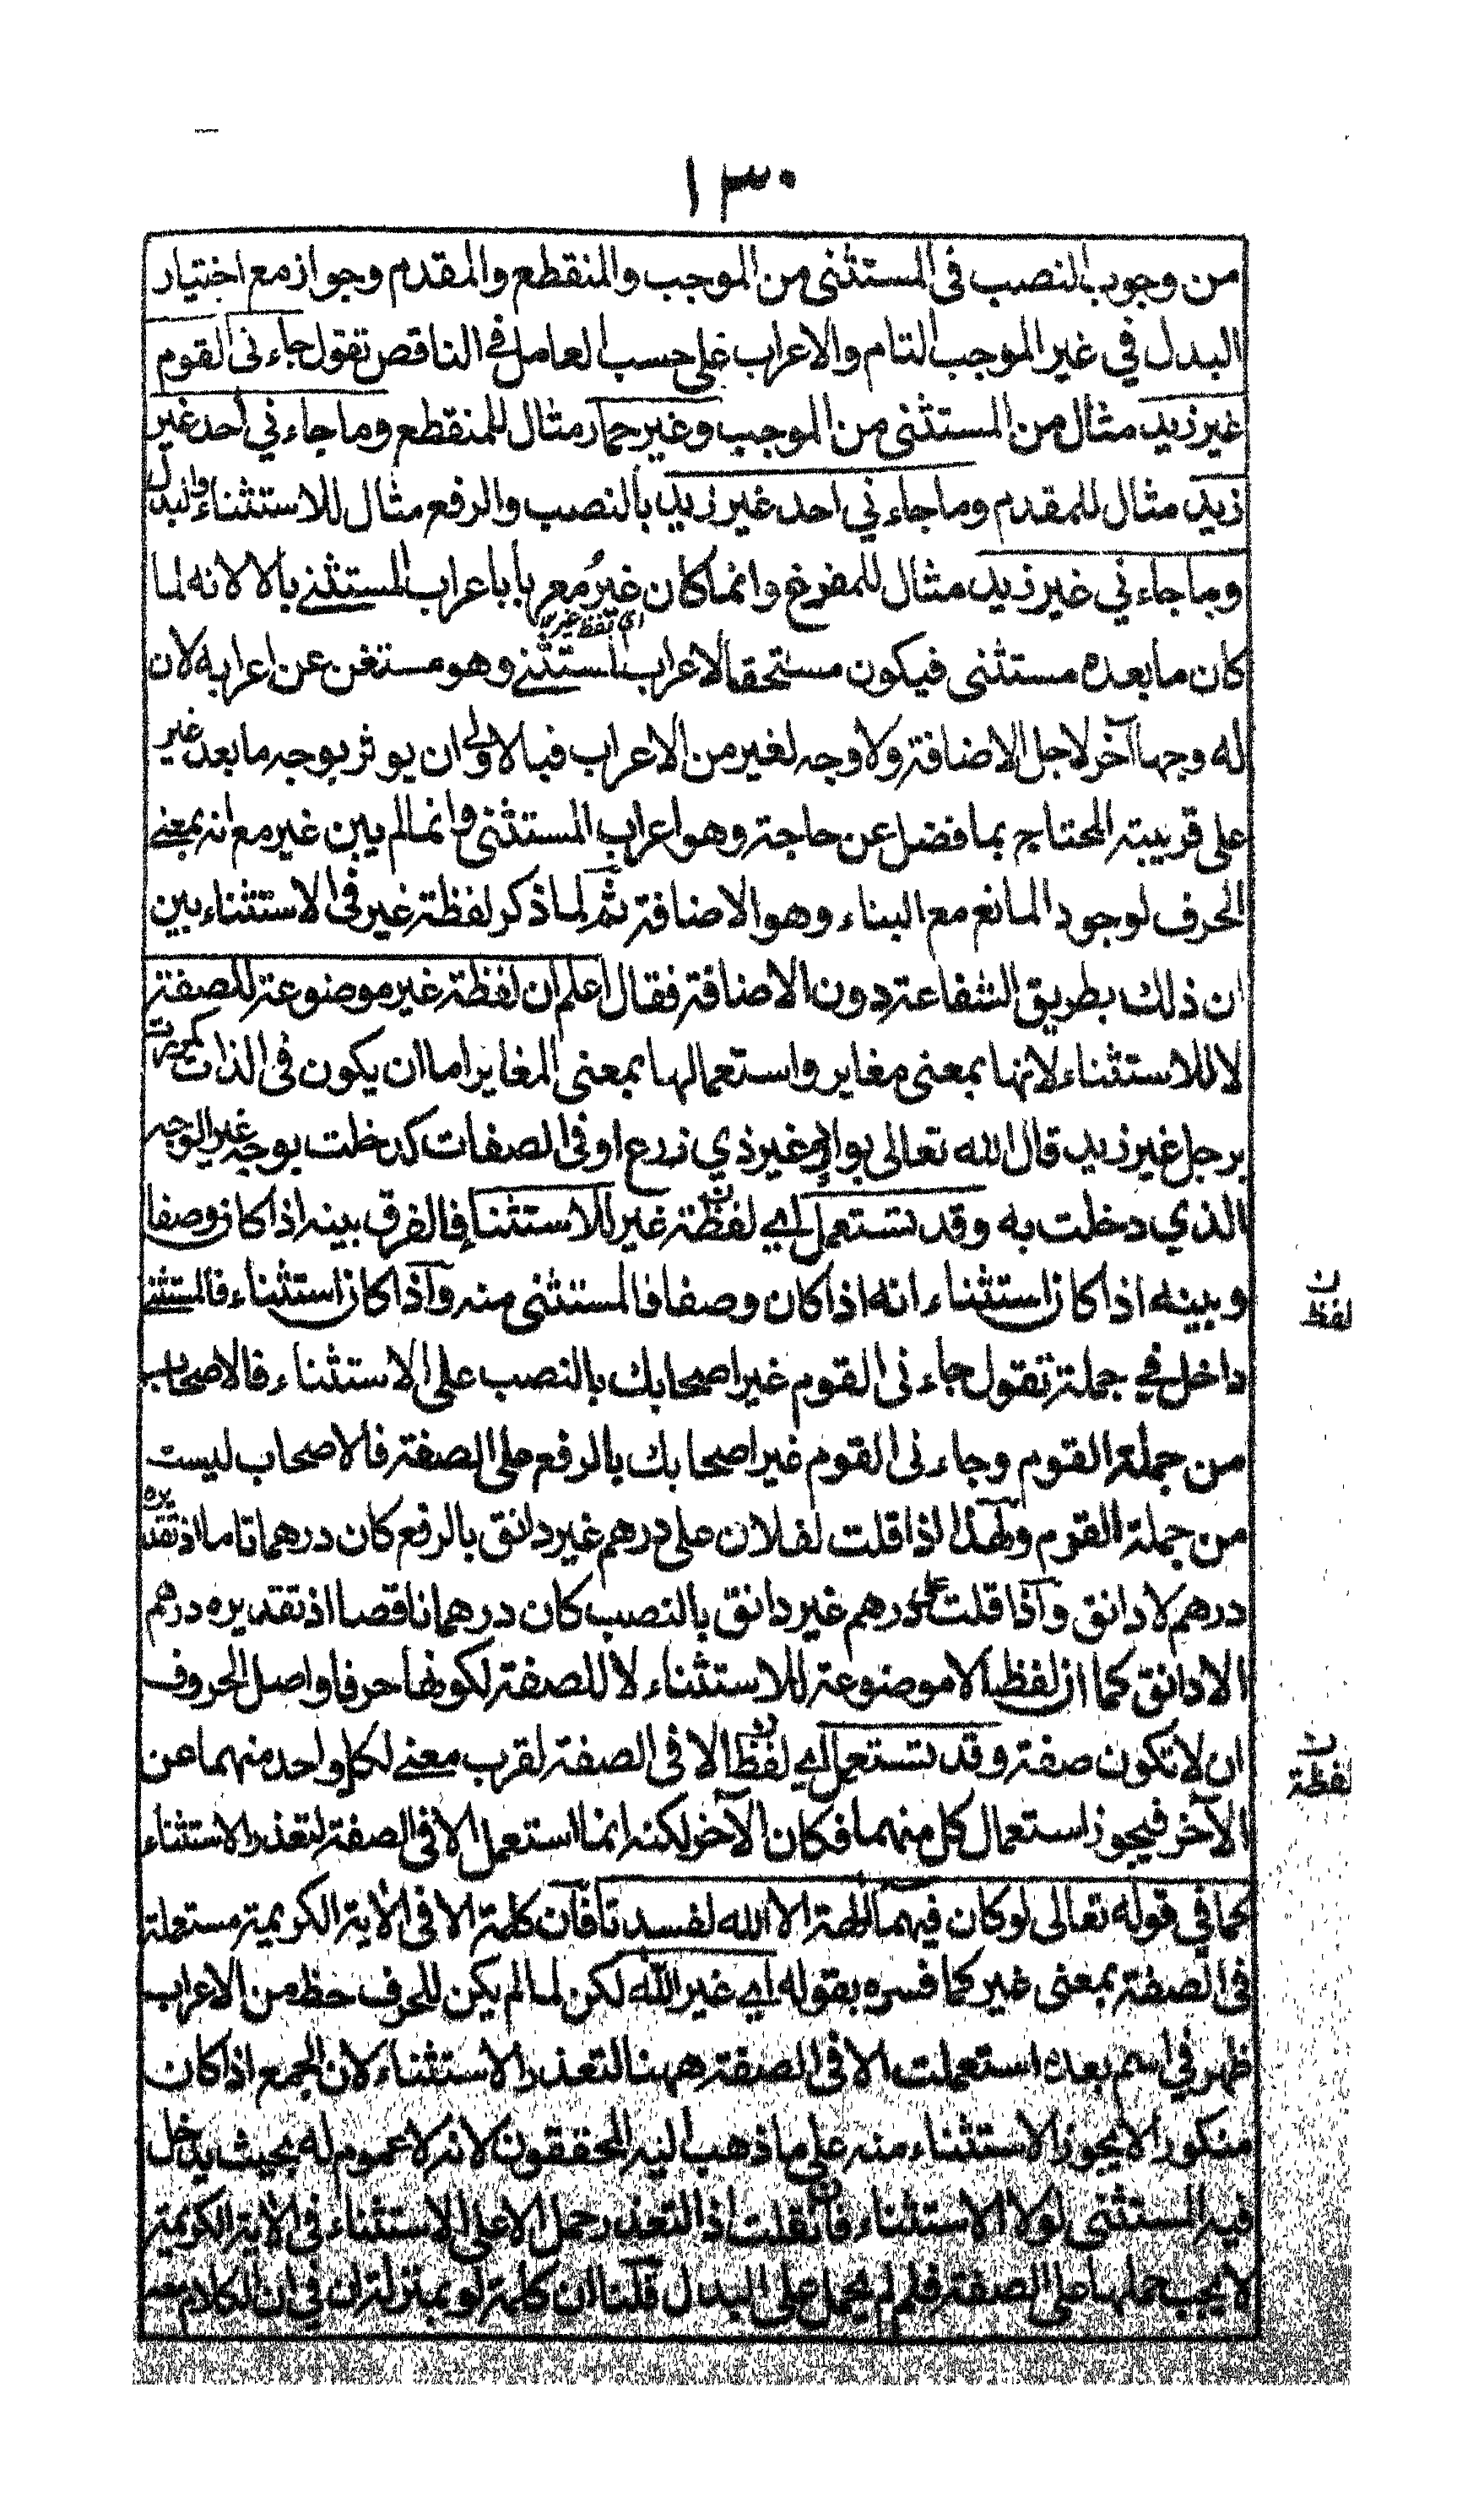 ١٣٠
من وجوب النصب فى المستثنى من الموجب والمنقطع والمقدم وجواز مع اختيار
البدل في غير الموجب التام والاعراب على حسب العامل فے الناقص تقول جاءنى القوم
غير زيد مثال من المستثنى من الموجب وغير حمار مثال للمنقطع وما جاءني احد غير
زيد مثال للمقدم وما جاءني احد غير زيد بالنصب والرفع مثال للاستثناء والبدل
وما جاءني غير زيد مثال للمفرغ وانما كان غير معربا باعراب المستثنے بالا لانه لما
اى لفظ غير
كان ما بعده مستثنى فيكون مستحقا لاعراب المستثنے وهو مستغن عن اعرابه لان
له وجها آخر لاجل الاضافة ولا وجه لغير من الاعراب فبالاولے ان يوثر بوجه ما بعد غير
على قريبته المحتاج بما فضل عن حاجته وهو اعراب المستثنى وانما لم يبن غير مع انه بمعنے
الحرف لوجود المانع مع البناء وهو الاضافة ثم لما ذكر لفظة غير فى الاستثناء بين
ان ذلك بطريق الشفاعة دون الاضافة فقال اعلم ان لفظة غير موضوعة للصفة
لا للاستثناء لانها بمعنى مغاير واستعمالها بمعنى المغاير اما ان يكون فى الذات كمررت
برجل غير زيد قال الله تعالى بواد غير ذي زرع او فى الصفات كدخلت بوجه غير الوجه
الذي دخلت به وقد تستعمل اے لفظة غير للاستثناء فالفرق بينه اذا كان وصفا
وبينه اذا كان استثناء انه اذا كان وصفا فالمستثنى منه واذا كان استثناء فالمستثنے
داخل فے جملة تقول جاءنى القوم غير اصحابك بالنصب على الاستثناء فالاصحاب
من جملة القوم وجاءنى القوم غير اصحابك بالرفع على الصفة فالاصحاب ليست
من جملة القوم ولهذا اذا قلت لفلان على درهم غير دانق بالرفع كان درهما تاما اذ تقديره
درهم لا دانق واذا قلت على درهم غير دانق بالنصب كان درهما ناقصا اذ تقديره درهم
الا دانق كما ان لفظ الا موضوعة للاستثناء لا للصفة لكونها حرفا واصل الحروف
ان لا تكون صفة وقد تستعمل اے لفظ الا فى الصفة لقرب معنے لكل واحد منهما عن
الآخر فيجوز استعمال كل منهما فكان الآخر لكنه انما استعمل الا فى الصفة لتعذر الاستثناء
كما في قوله تعالى لو كان فيهما آلهة الا الله لفسدتا فان كلمة الا فى الآية الكريمة مستعملة
فى الصفة بمعنى غير كما فسره بقوله اے غير الله لكن لما لم يكن للحرف حظ من الاعراب
ظهر في اسم بعده استعملت الا فى الصفة ههنا لتعذر الاستثناء لان الجمع اذا كان
منكورا لا يجوز الاستثناء منه على ما ذهب اليه المحققون لانه لا عموم له بحيث يدخل
فيه المستثنى لولا الاستثناء فان قلت اذا تعذر حمل الا على الاستثناء فى الآية الكريمة
لا يجب حملها على الصفة فلم لم يحمل على البدل قلنا ان كلمة لو بمنزلة ان في ان الكلام معه
ن
لفظ
ن
لفظة